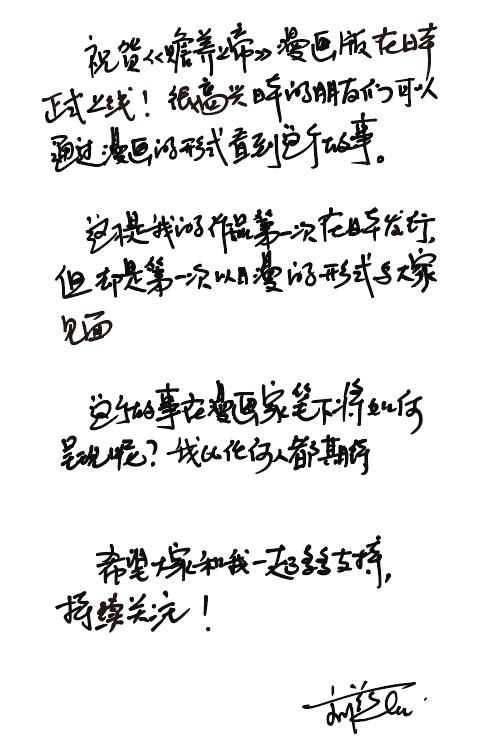 祝贺《赡养上帝》漫画版在日本
正式上线！很高兴日本的朋友们可以
通过漫画的形式看到这个故事。
这不是我的作品第一次在日本发行,
但却是第一次以日漫的形式与大家
见面
这个故事在漫画家笔下将如何
呈现呢？我比任何人都期待
希望大家和我一起多多支持,
持续关注！